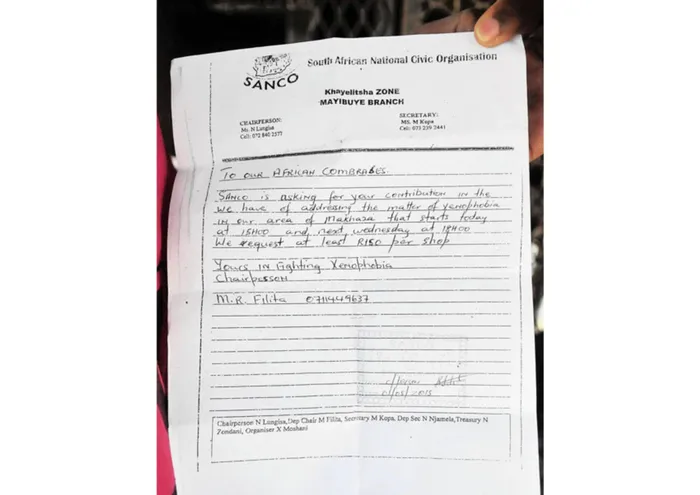 SANCO
South African National Civic Organisation
Khayelitsha ZONE
MAYIBUYE BRANCH
CHAIRPERSON:
Mr. N Lungisa
Cell: 072 840 2577
SECRETARY:
MS. M Kopa
Cell: 071 239 2441
TO OUR AFRICAN COMBRADES
SANCO is asking for your contribution in the
we have of addressing the matter of xenophobia
in our area of Makhaza that starts today
at 15H00 and next wednesday at 18H00
We request at least R150 per shop
Yours in Fighting Xenophobia
Chairperson
M.R. Filita 0711449637
Chairperson N Lungisa, Dep Chair M Filita, Secretary M Kopa, Dep Sec N Njamela, Treasury N
Zondani, Organiser X Moshani